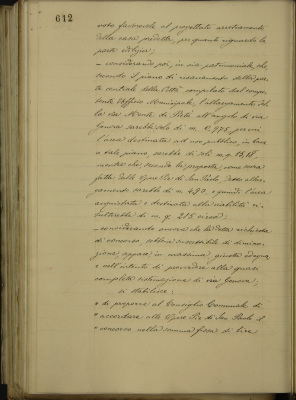 612
voto favorevole al progettato arretramento
della casa predetta, per quanto riguarda la
parte edilizia;
- considerando poi, in via patrimoniale, che
secondo il piano di risanamento della par-
te centrale della Città compilato dal compe-
tente Ufficio Municipale, l'allargamento del-
la via Monte di Pietà all'angolo di via
Genova sarebbe solo di m. 0,975 per cui
l'area destinata ad uso pubblico, in base
a tale piano, sarebbe di soli m.q.
mentre che secondo la proposta come sovra
fatta dalle Opere Pie di San Paolo, detto allar-
gamento sarebbe di m. 4.90, e quindi l'area
acquistata e destinata alla viabilità ri-
sulterebbe di m. q. 215 circa;
- considerando ancora che la detta richiesta
di concorso, sebbene suscettibile di diminu-
zione, appare in massima giusta ed equa,
e nell'intento di provvedere alla quasi
completa sistemazione di via Genova;
si stabilisce:
" di proporre al Consiglio Comunale di
" accordare alle Opere Pie di San Paolo il
" concorso nella somma fissa di lire